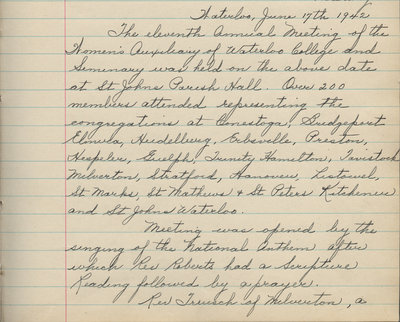 Waterloo, June 17th 1942
The eleventh Annual Meeting of the
Women's Auxiliary of Waterloo College and
Seminary was held on the above date
at St Johns Parish Hall. Over 200
members attended representing the
congregations at Conestoga, Bridgeport
Elmira, Heidelberg, Erbsville, Preston,
Hespeler, Guelph, Trinity Hamilton, Tavistock
Milverton, Stratford, Hanover, Listowel,
St Marks, St Mathews & St Peters Kitchener
and St Johns Waterloo.
Meeting was opened by the
singing of the National Anthem after
which Rev Roberts had a Scripture
Reading followed by a prayer.
Rev Treusch of Milverton, a